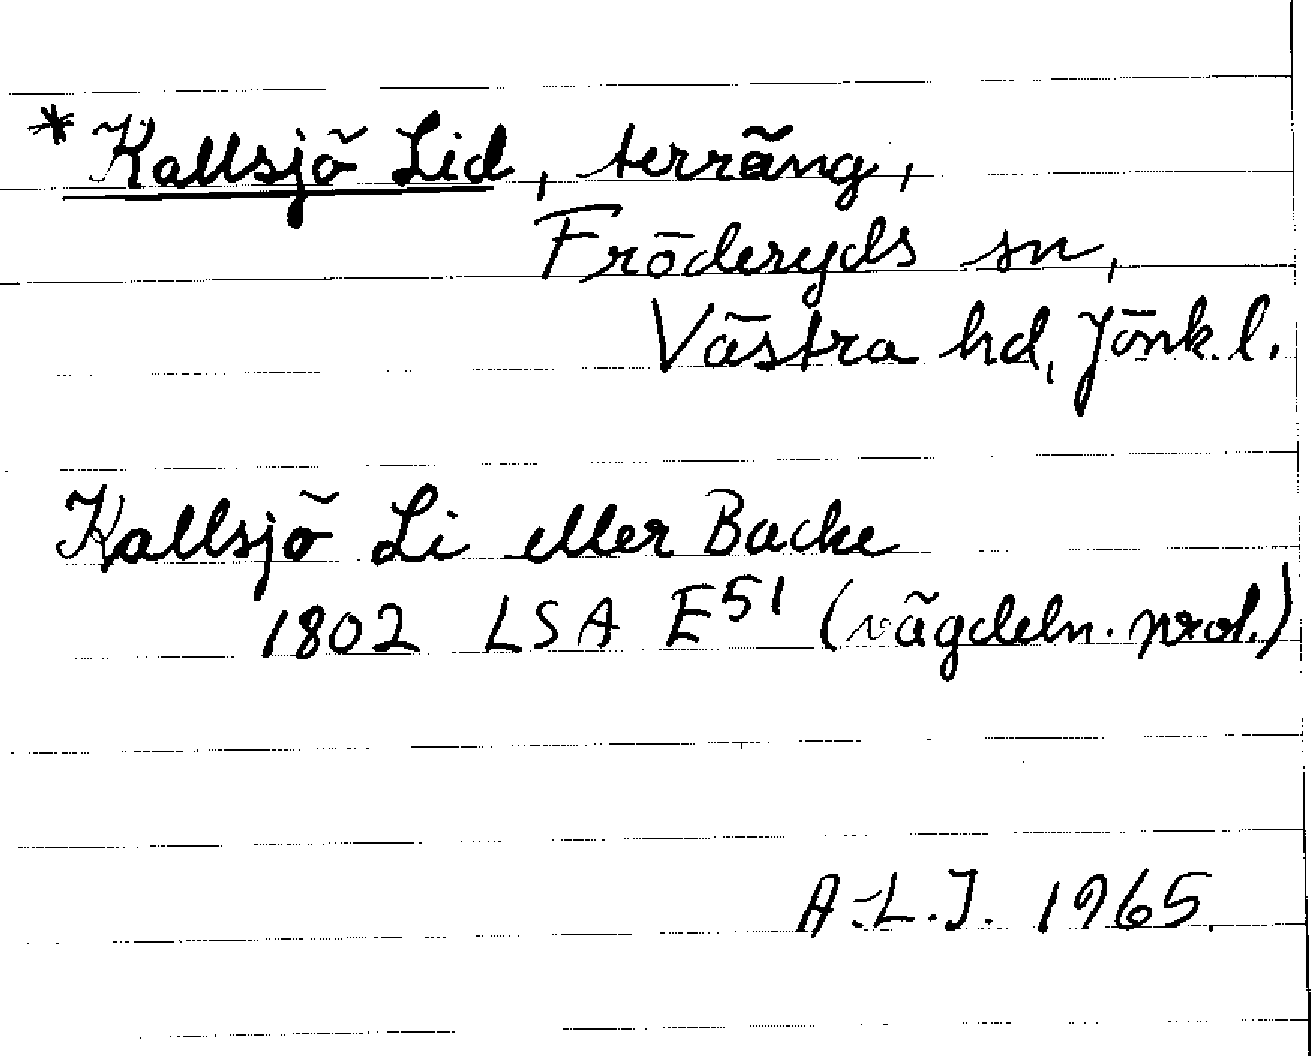 * Kallsjö Lid, terräng,
Fröderyds sn,
Västra hd, Jönk. l.
Kallsjö Li eller Backe
1802 LSA E51 (vägdeln. prot.)
A.-L.J. 1965.